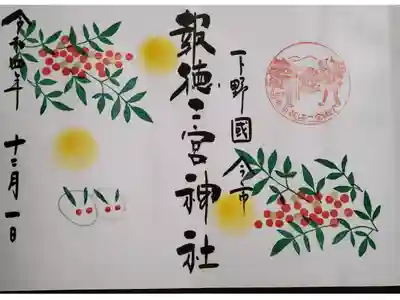 下野國 今市
報徳二宮神社
令和四年 十二月一日